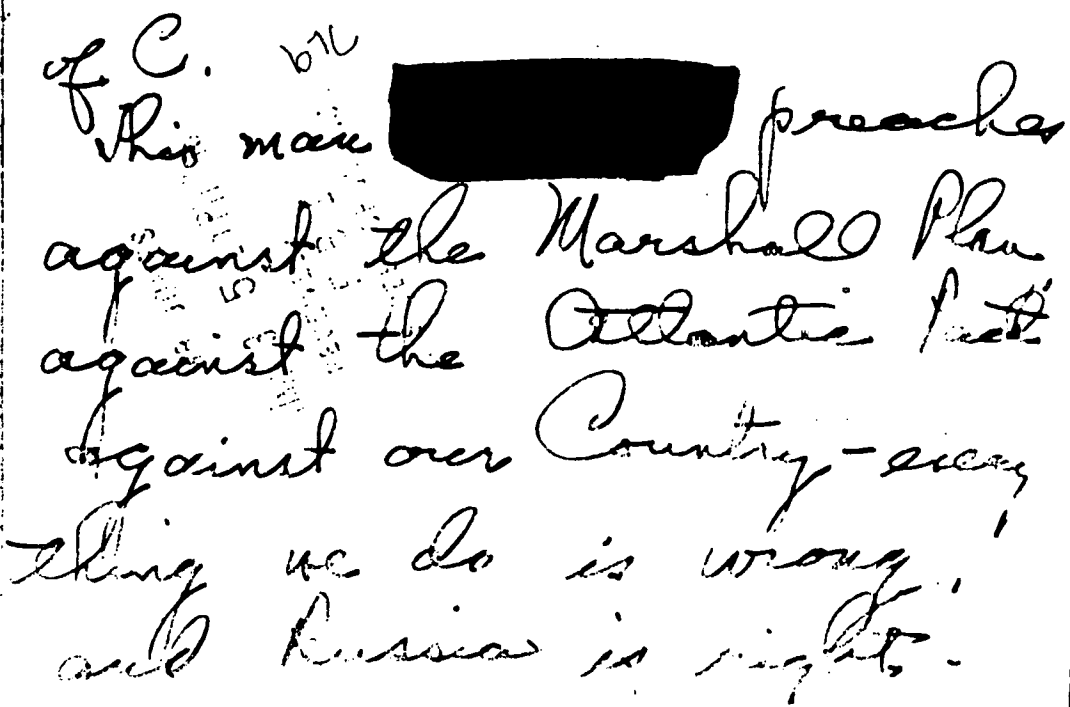 of C. b7C
This man preaches
against the Marshall Plan
against the Atlantic Pact
against our Country - every
thing we do is wrong!
and Russia is right.